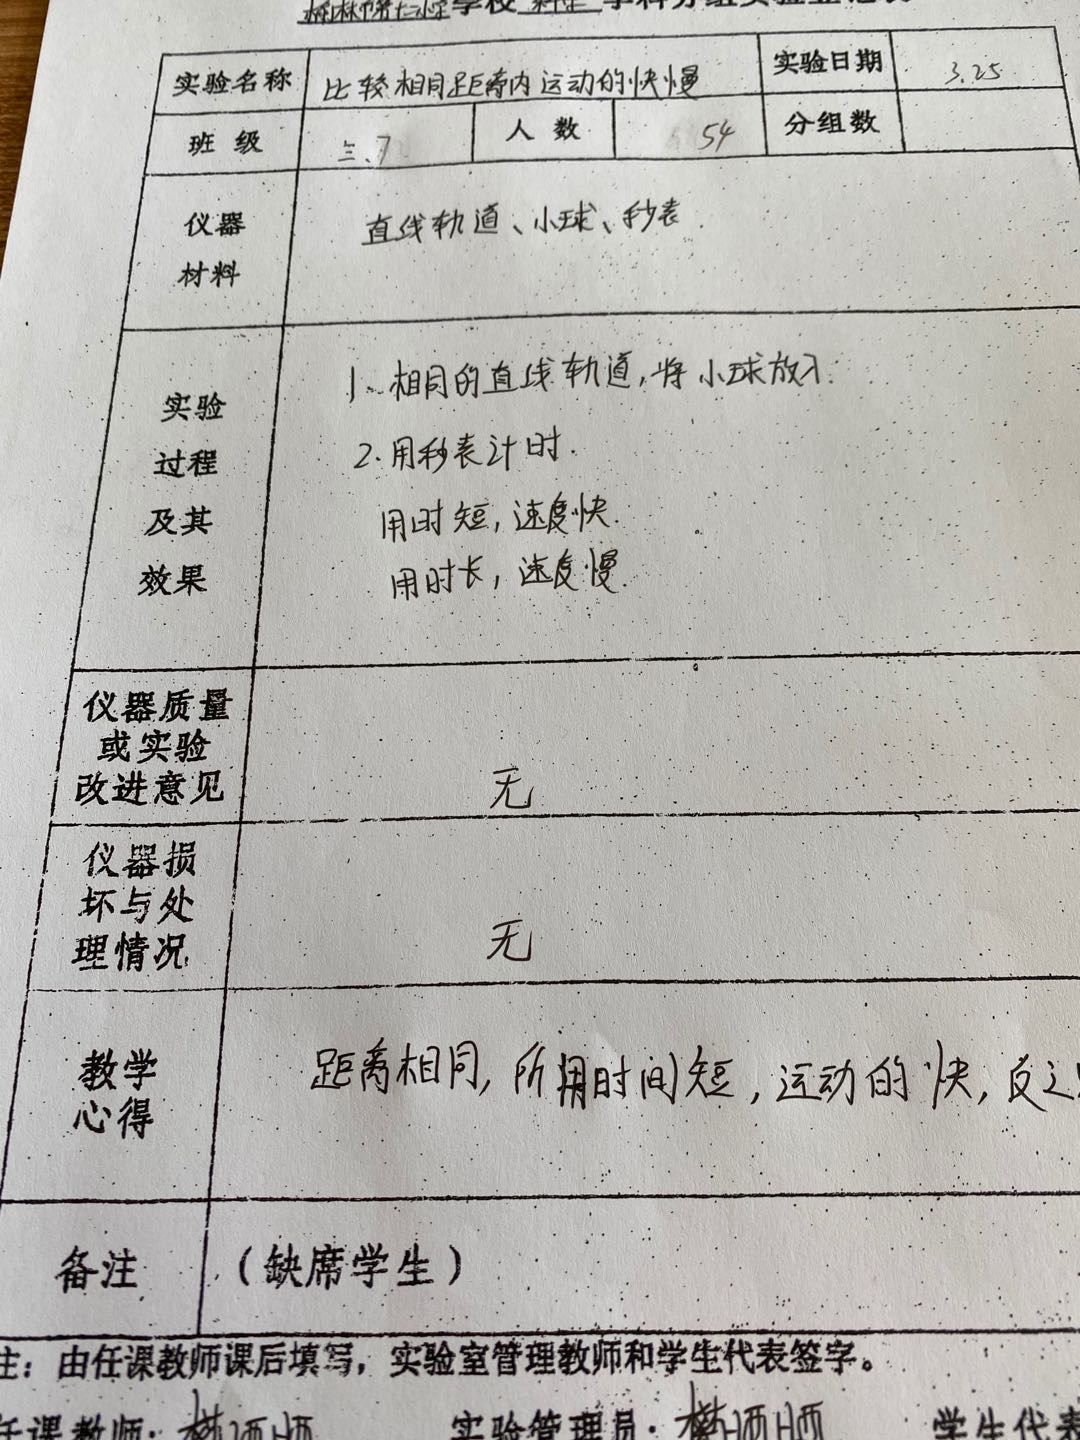 学校 学科分组实验登记表
实验名称 比较相同距离内运动的快慢 实验日期 3.25
班级 三.7 人数 54 分组数
仪器材料 直线轨道、小球、秒表
实验过程及其效果
1. 相同的直线轨道,将小球放入.
2.用秒表计时.
用时短,速度快.
用时长,速度慢
仪器质量
或实验
改进意见 无
仪器损
坏与处
理情况 无
教学
心得 距离相同,所用时间短,运动的快,反之
备注 (缺席学生)
注:由任课教师课后填写,实验室管理教师和学生代表签字。
任课教师: 实验管理员: 学生代表